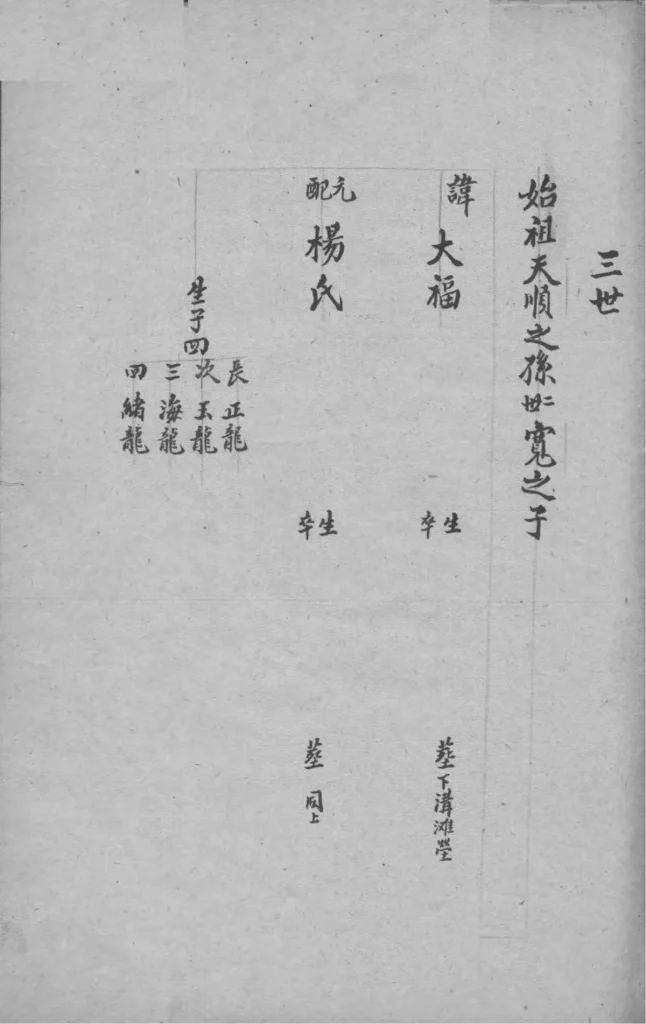 三世
始祖天順之孫世二寬之子
諱 大福 生 卒 葬下溝灘塋
元配 楊氏 生 卒 葬 同上
生子四
長 正龍
次 玉龍
三 海龍
四 緒龍